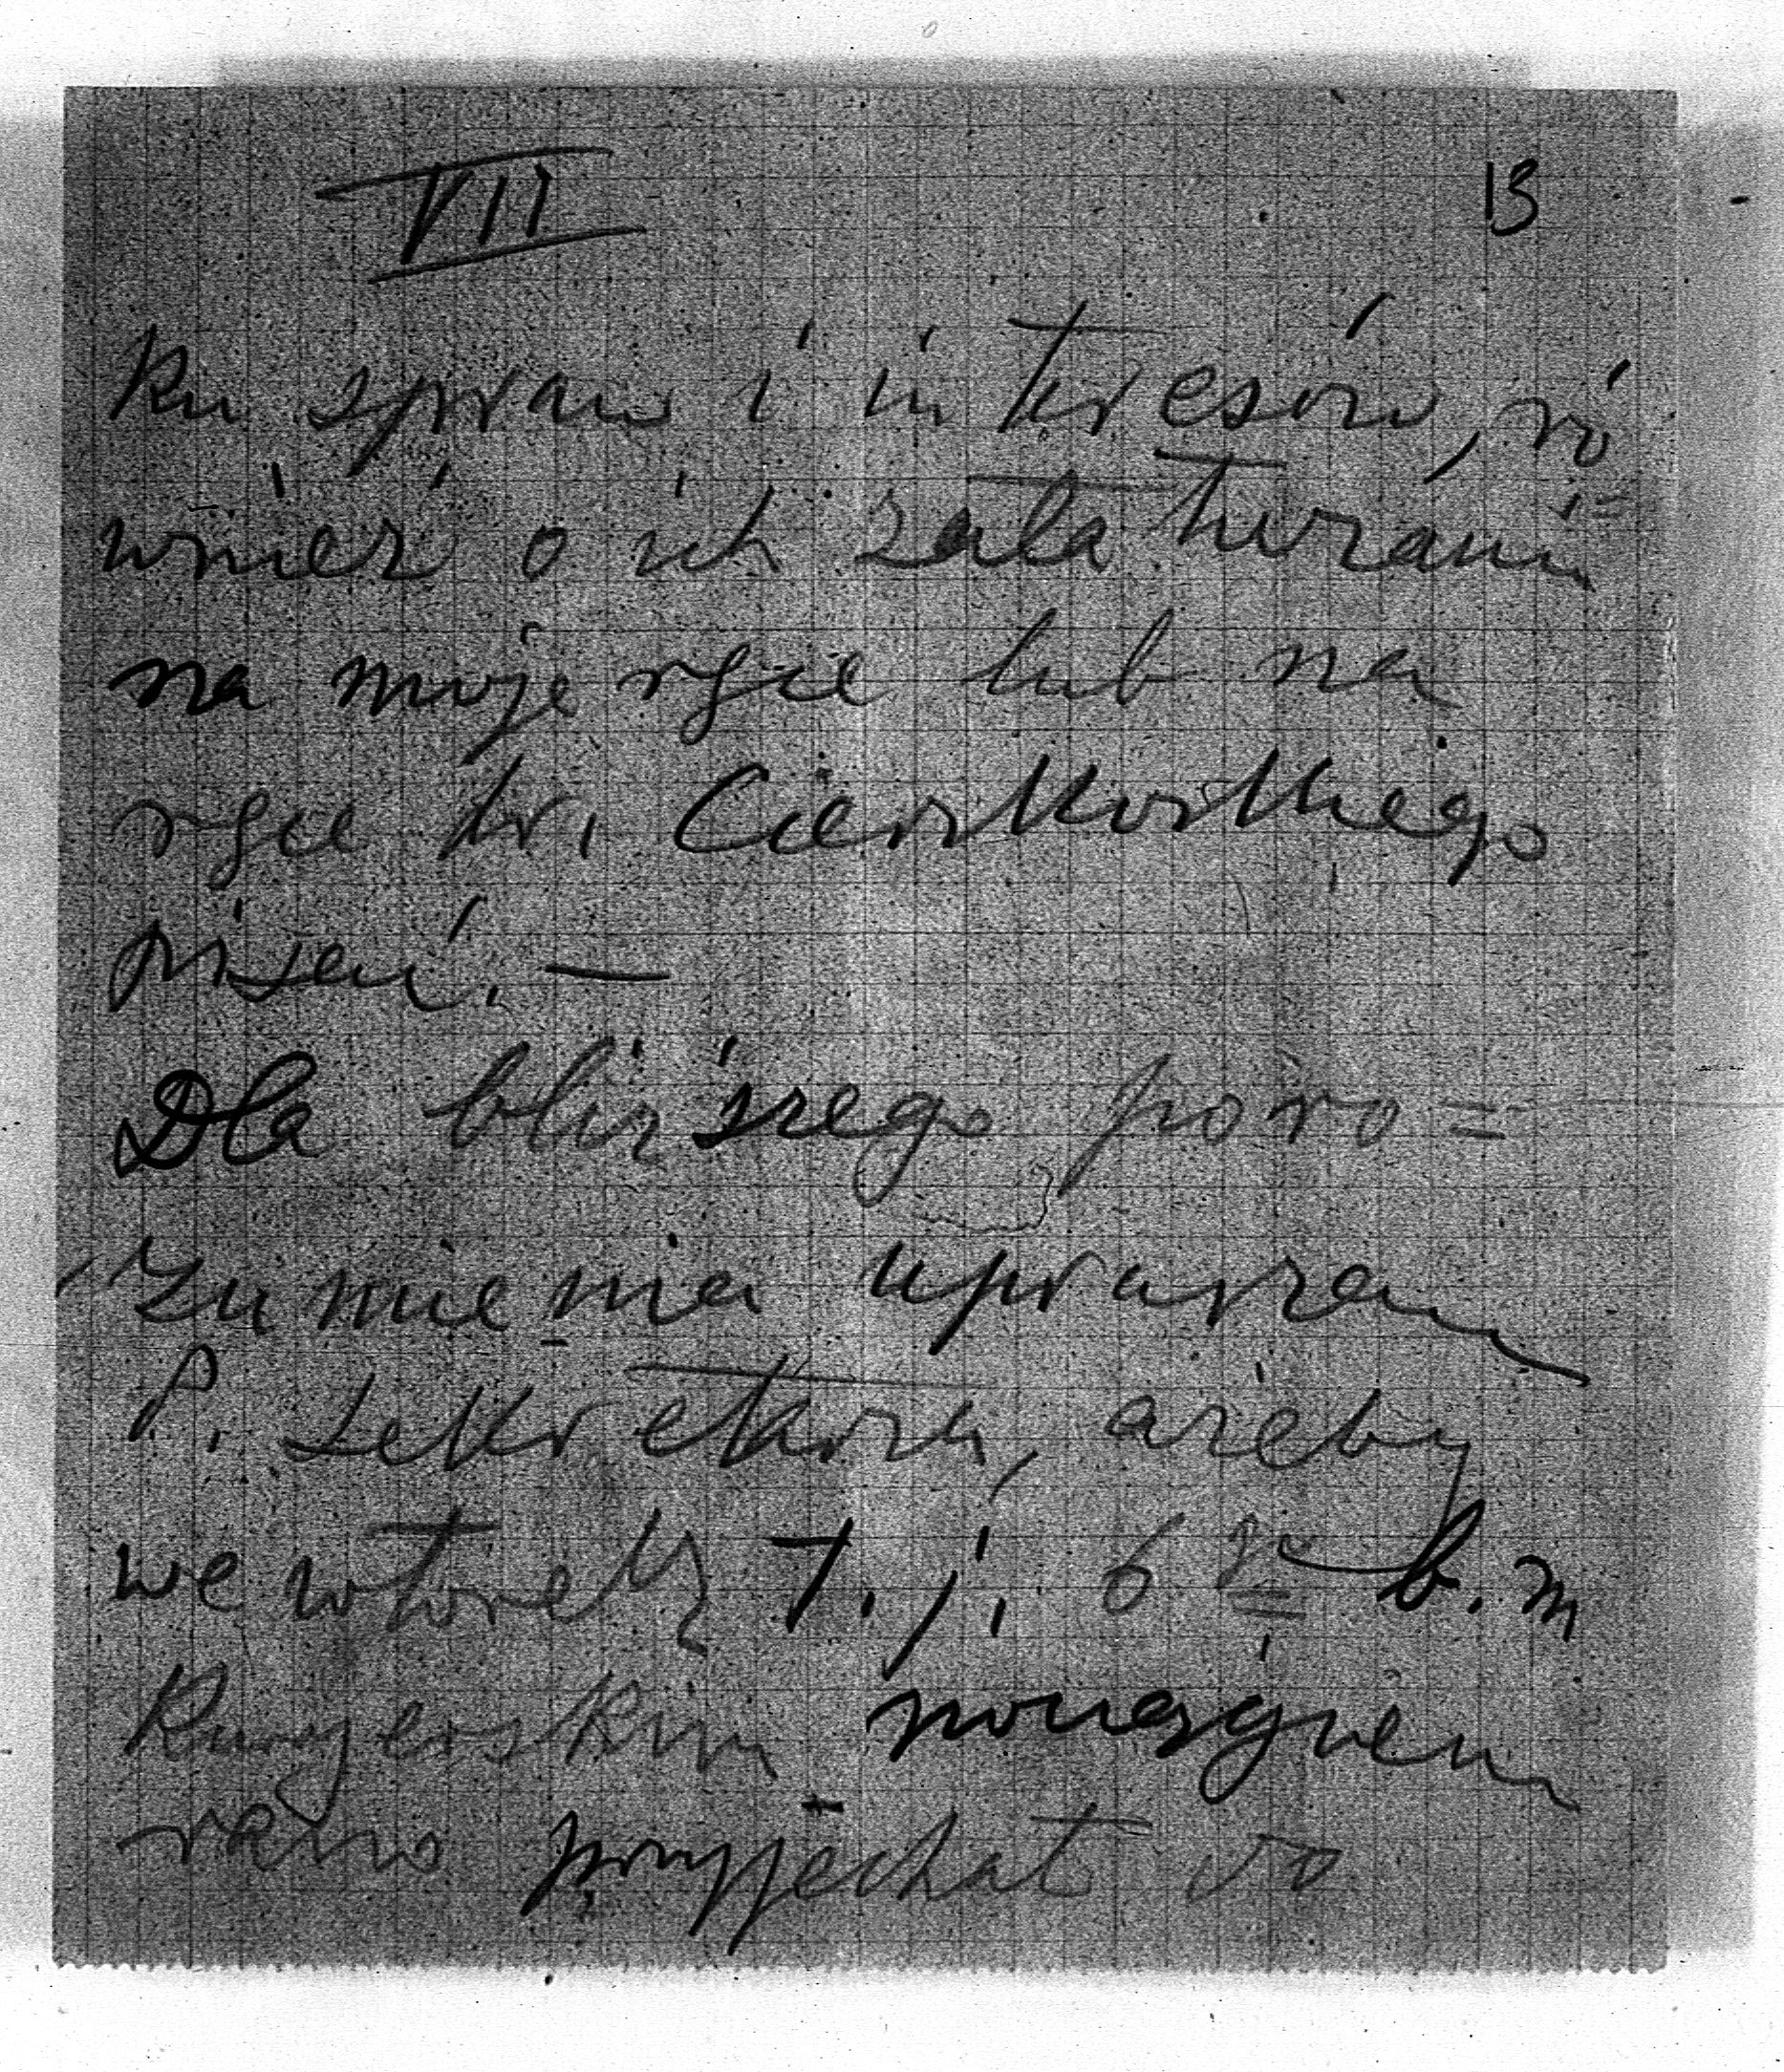 VII 13
ku spraw i interesów, ró=
wnież o ich załatwianiu
na moje ręce lub na
ręce hr. Cieszkowskiego
pisać. —
Dla bliższego poro=
zumienia upraszam
P. Sekretarza, ażeby
we wtorek t. j. 6 go b. m
Kuryerskim pociągiem
rano przyjechał do